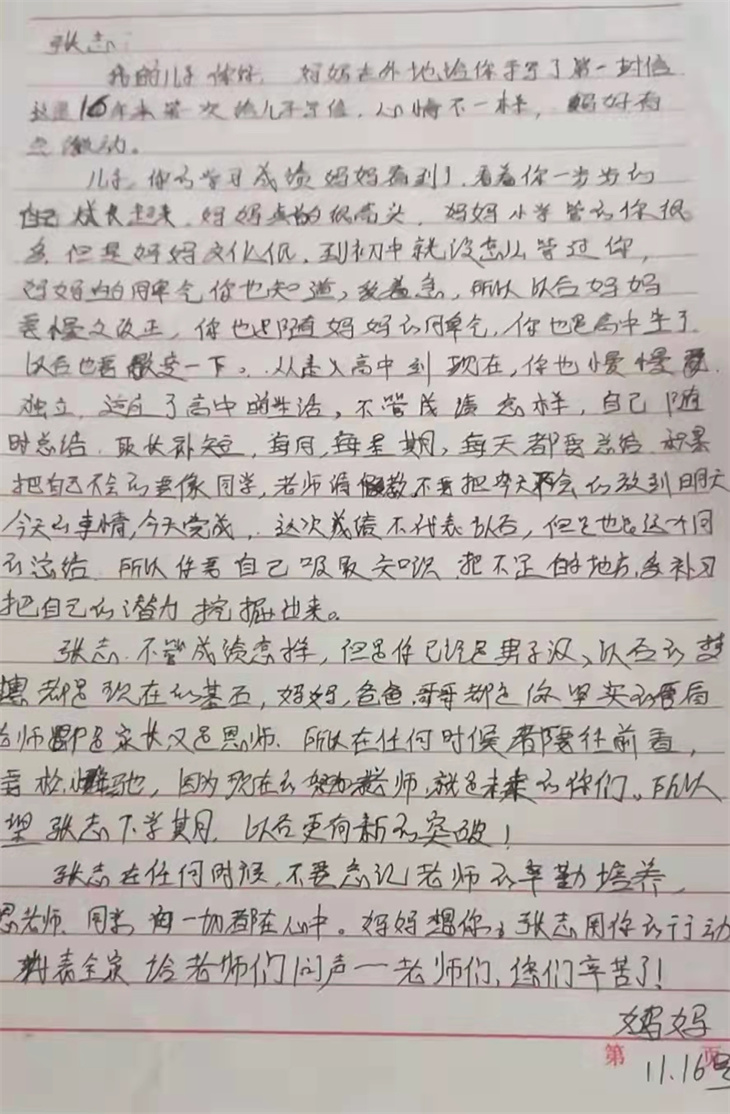 张志:
我的儿子你好. 妈妈在外地给你手写了第一封信.
这是16年来第一次给儿子写信,心情不一样, 妈妈有
点激动。
儿子,你的学习成绩妈妈看到了.看着你一步步的
自己成长起来.妈妈真的很高兴.妈妈小学管的你很
多.但是妈妈文化低.到初中就没怎么管过你,
妈妈的简单令你也知道,发着急,所以以后妈妈
要慢慢改正,你也是随妈妈的简单令,你也是高中生了.
以后也要改变一下。.从走入高中到现在,你也慢慢
独立.适应了高中的生活,不管成绩怎样,自己随
时总结.取长补短,每月,每星期,每天都要总结.积累
把自己不会的要像同学,老师请教,不要把今天不会的放到明天
今天的事情,今天完成,.这次成绩不代表以后,但是也是这个月
的总结.所以你要自己吸取知识.把不足的地方,多补习
把自己的潜力挖掘出来。
张志.不管成绩怎样,但是你已经是男子汉、以后的梦
想都是现在的基石,妈妈,爸爸,哥哥都是你坚实的
老师即是家长又是恩师.所以在任何时候都要往前看,
要松驰,因为现在的老师,就是未来的你们。所以
望张志下学期.以后更有新的突破!
张志在任何时候,不要忘记老师的辛勤培养,
恩老师.同学 一切都在心中。妈妈想你,张志用你的行动
代表全家给老师们问声一老师们,您们辛苦了!
妈妈
第 页
11.16号